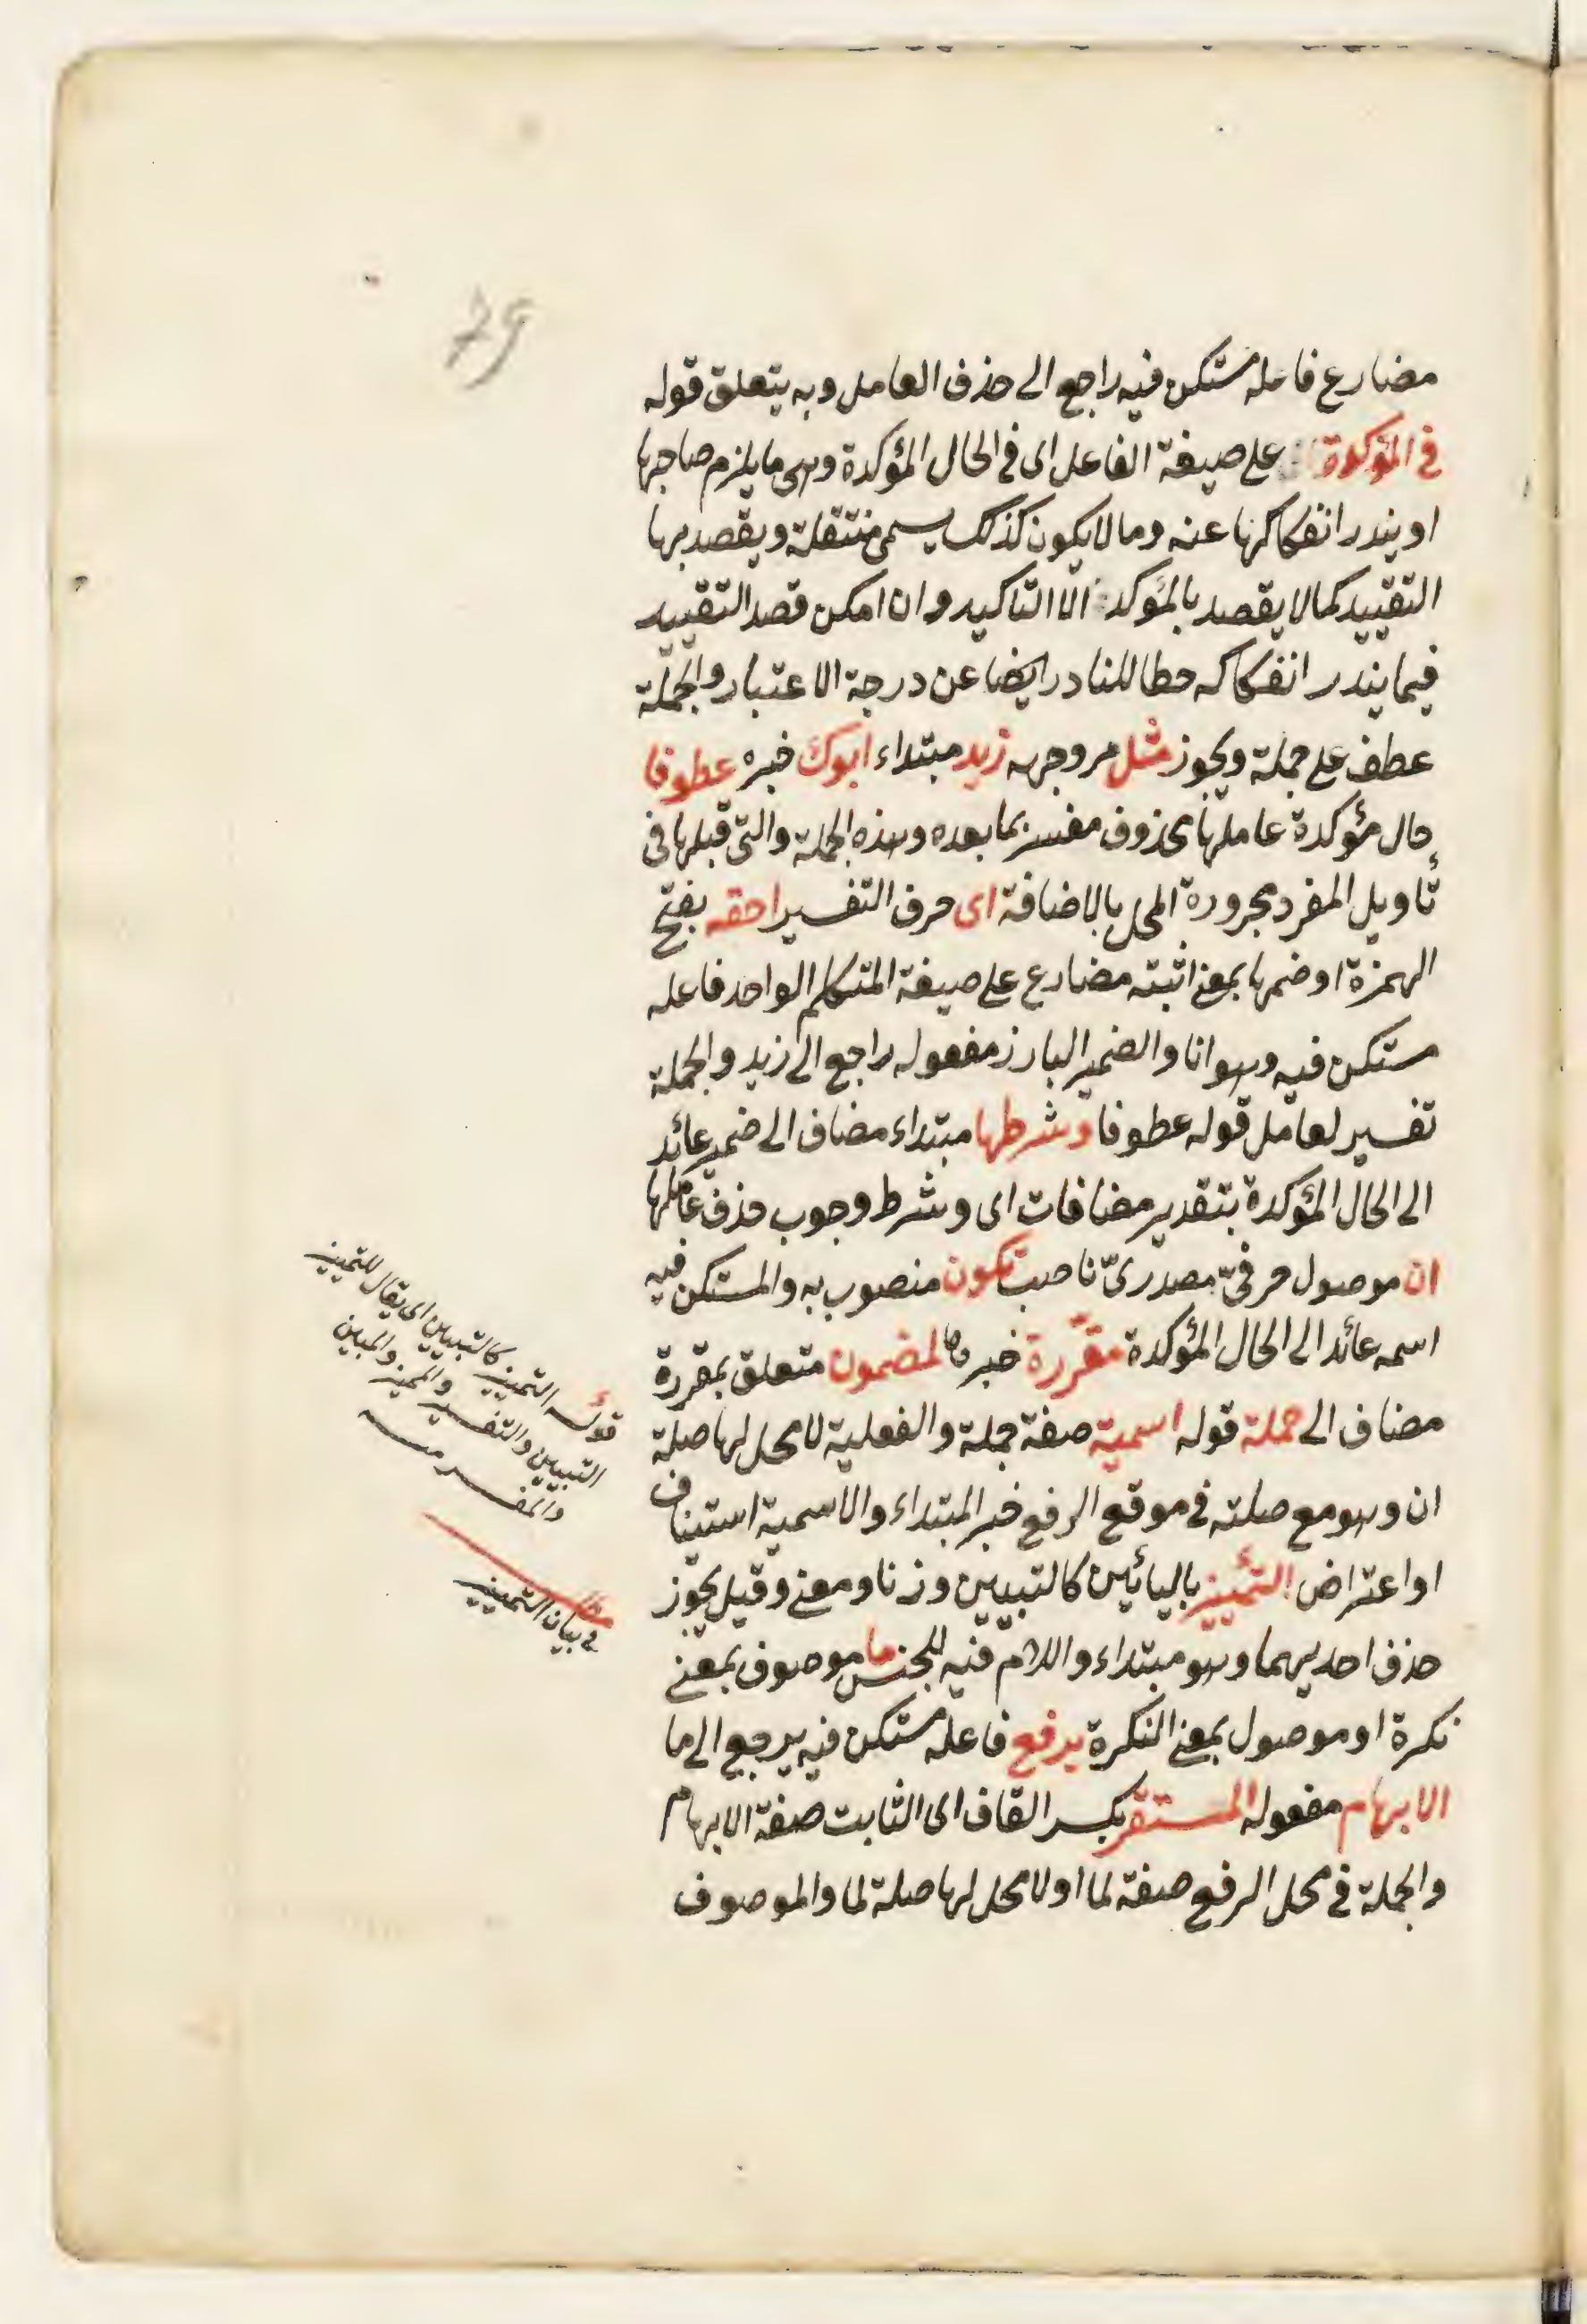 79
مضارع فاعله مستكن فيه راجع الى حذف العامل وبه يتعلق قوله
فى المؤكدة على صيغة الفاعل اى فى الحال المؤكدة وهى ما يلزم صاحبها
او يندر انفكاكها عنه وما لا يكون كذلك يسمى منتقلة ويقصد بها
التقييد كما لا يقصد بالمؤكد الا التاكيد وان امكن قصد التقييد
فيما يندر انفكاكه حطا للنادر ايضا عن درجة الاعتبار والجملة
عطف على جملة ويجوز مثل مر وجهه زيد مبتداء ابوك خبره عطوفا
حال مؤكدة عاملها محذوف مفسر بما بعده وهذه الجملة والتى قبلها فى
تأويل المفرد مجرورة المحل بالاضافة اى حرف التفسير احقه بفتح
الهمزة او ضمها بمعنى اثبته مضارع على صيغة المتكلم الواحد فاعله
مستكن فيه وهو انا والضمير البارز مفعوله راجع الى زيد والجملة
تفسير لعامل قوله عطوفا وشرطها مبتداء مضاف الى ضمير عائد
الى الحال المؤكدة بتقدير مضافات اى وشرط وجوب حذف عاملها
ان موصول حرفىّ مصدرىّ ناصب تكون منصوب به والمستكن فيه
اسمه عائد الى الحال المؤكدة مقرّرة خبر كا لمضمون متعلق بمقررة
مضاف الى جملة قوله اسمية صفة جملة والفعلية لا محل لها صلة
ان وهو مع صلته فى موقع الرفع خبر المبتداء والاسمية استيناف
او اعتراض التمييز باليائين كالتبيين وزنا ومعنى وقيل يجوز
حذف احديهما وهو مبتداء واللام فيه للجنس ما موصوف بمعنى
نكرة او موصول بمعنى النكرة يرفع فاعله مستكن فيه يرجع الى ما
الابهام مفعوله المستقر بكسر القاف اى الثابت صفة الابهام
والجملة فى محل الرفع صفة لما او لا محل لها صلة لما والموصوف
قوله التمييز كالتبيين اى يقال للتمييز
التبيين والتفسير والمميز والمبين
والمفسر
فى بيان التمييز